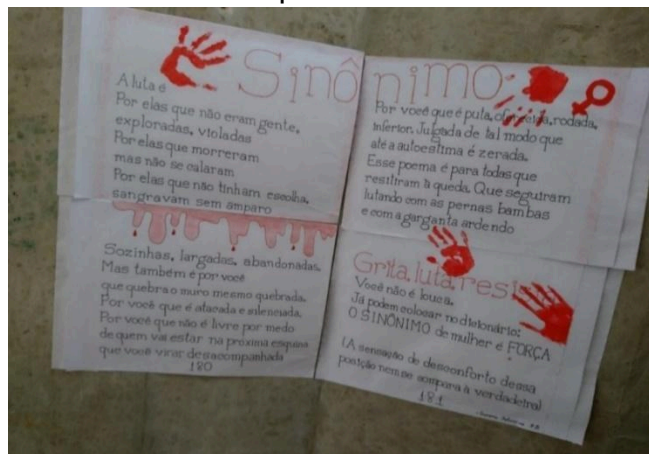 Sinônimo
A luta é
Por elas que não eram gente,
exploradas, violadas
Por elas que morreram
mas não se calaram
Por elas que não tinham escolha,
sangravam sem amparo
Sozinhas, largadas, abandonadas.
Mas também é por você
que quebra o muro mesmo quebrada.
Por você que é atacada e silenciada,
Por você que não é livre por medo
de quem vai estar na próxima esquina
que você virar desacompanhada
180
Por você que é puta, oferecida, rodada,
inferior. Julgada de tal modo que
até a autoestima é zerada.
Esse poema é para todas que
resistiram à queda. Que seguiram
lutando com as pernas bambas
e com a garganta ardendo
Grita, luta, resiste
Você não é louca.
Já podem colocar no dicionário:
O SINÔNIMO de mulher é FORÇA
(A sensação de desconforto dessa
posição nem se compara à verdadeira)
181